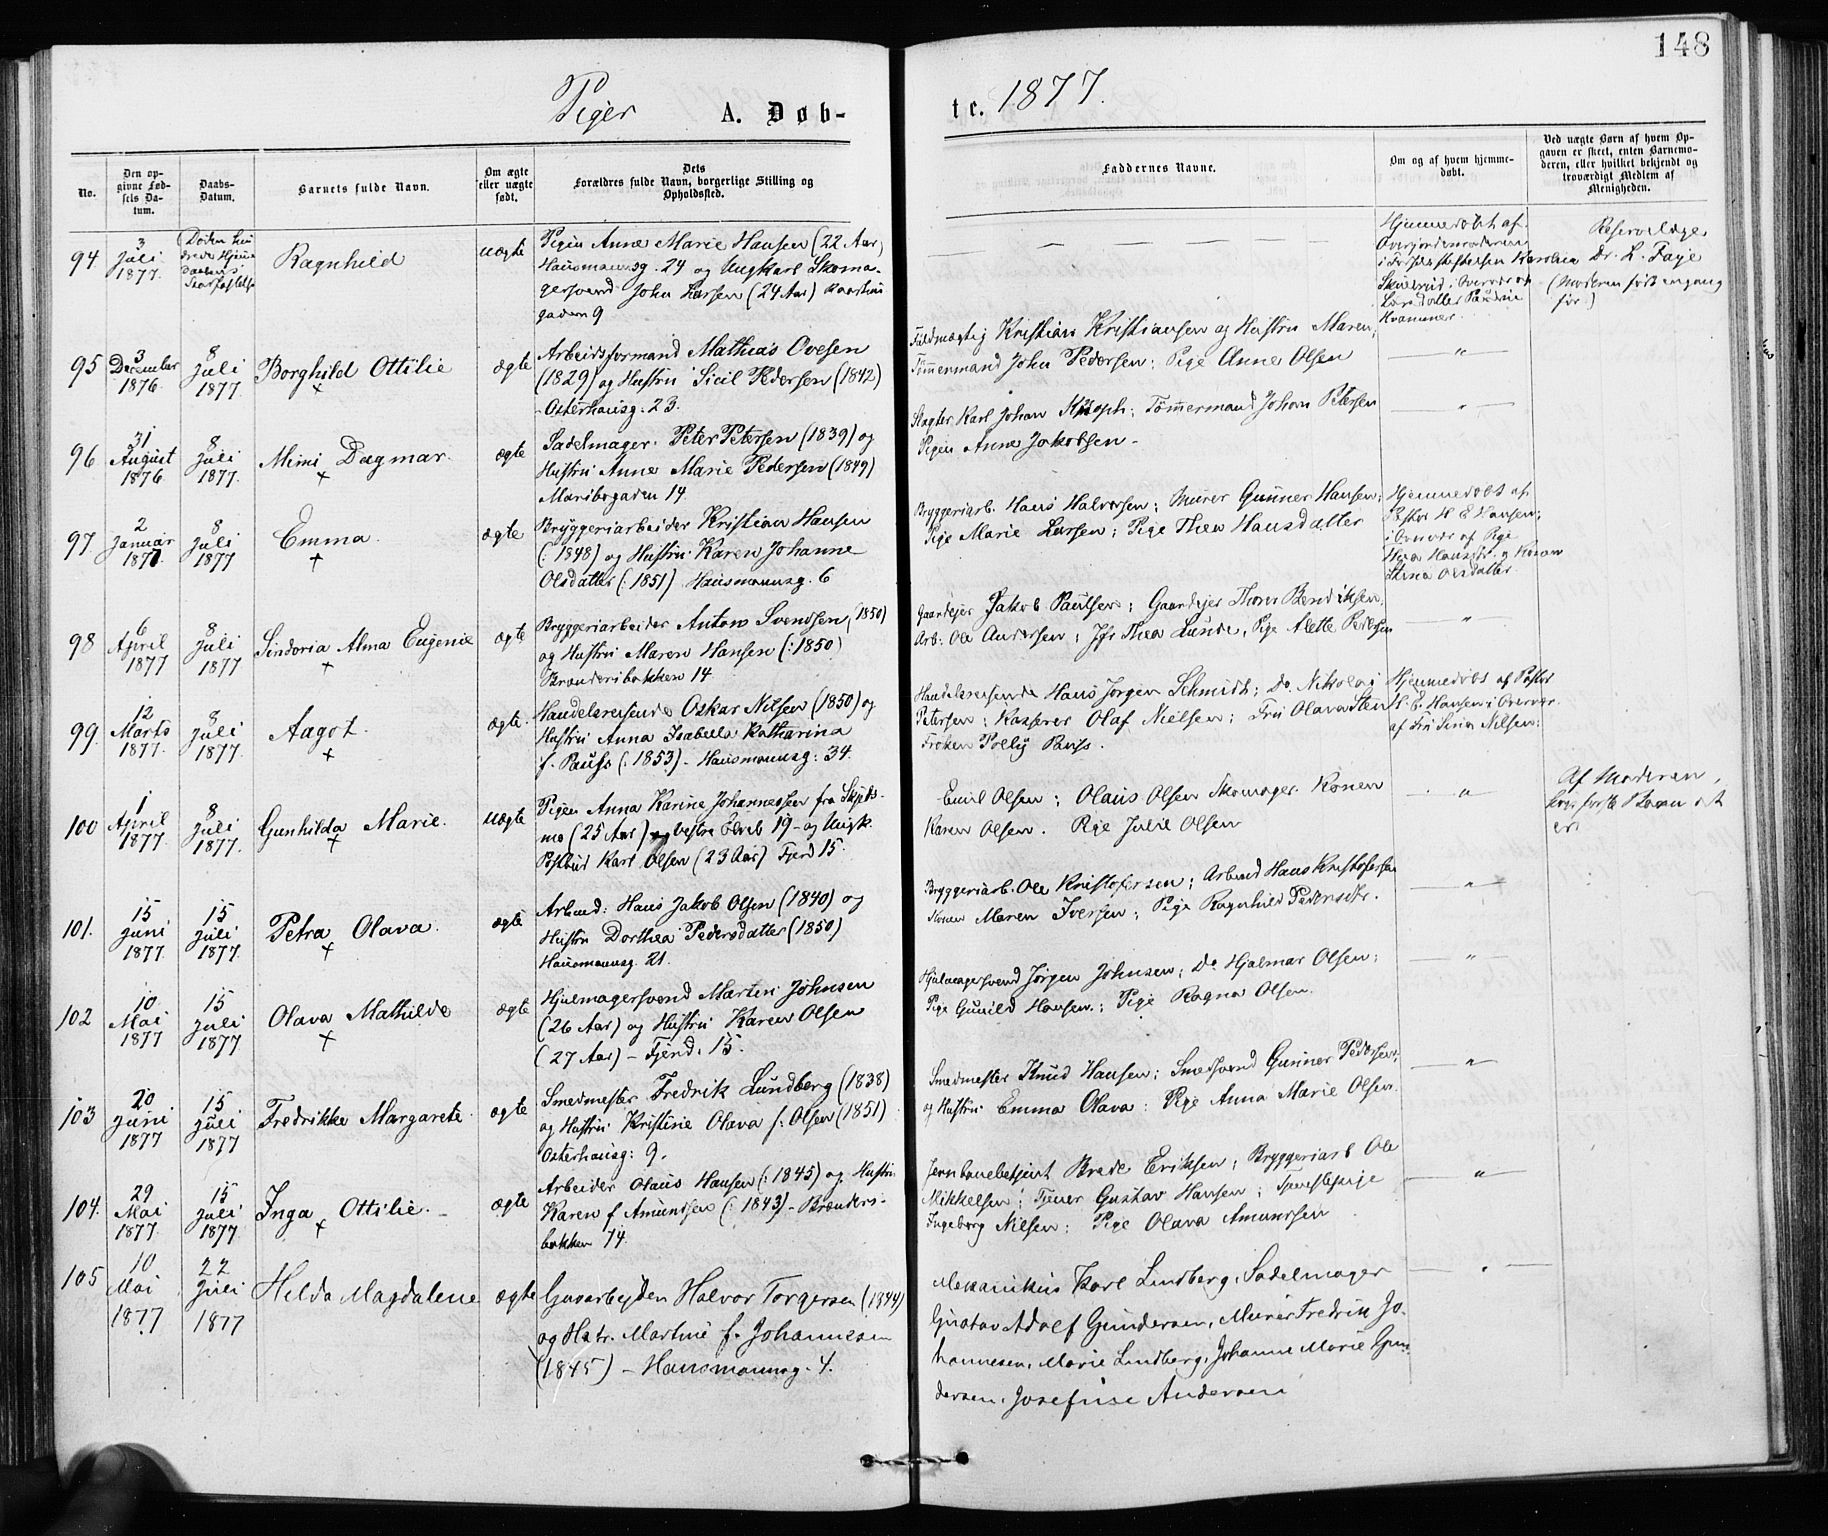 148
Piger A. Døb-
te. 1877.
No.
Den op-
givne Fød-
sels Da-
tum.
Daabs-
Datum.
Barnets fulde Navn.
Om ægte
eller uægte
født.
Dets
Forældres fulde Navn, borgerlige Stilling og
Opholdssted.
Faddernes Navne.
Om og af hvem hjemme-
døbt.
Ved uægte Børn af hvem Op-
gaven er skeet, enten Barnemo-
deren, eller hvilket bekjendt og
troværdigt Medlem af
Menigheden.
94
3
Juli
1877.
Døden
Ragnhild
uægte
Pigen Anne Marie Hansen (22 Aar)
Hausmannsg. 24 og Ungkarl Skoma-
gersvend John Larsen (24 Aar)
gaden 9
—
Hjemmedøbt af
Overjordemoderen
i Fødselsstiftelsen Karoline
Skinerud, Overvær af
Larsdatter
Kvammer.
Reservelæge
Dr. L. Faye
(Moderen født engang
før.)
95
3
December
1876
8
Juli
1877.
Borghild Ottilie
+
ægte
Arbeidsformand Mathias Ovesen
(1829) og Hustru Sicil Pedersen (1842)
- Osterhausg. 23.
Fuldmægtig Kristian Kristiansen og Hustru Maren;
Tømmermand John Pedersen; Pige Anne Olsen
— " —
96
31
August
1876
8
Juli
1877.
Mimi Dagmar.
+
ægte
Sadelmager. Peter Petersen (1839) og
Hustru Anne Marie Pedersen (1849)
Maribogaden 14
Slagter Karl Johan Knoph; Tømmermand Johan Petersen
Pigen Anne Jakobsen -
— " —
97
2
Januar
1877.
8
Juli
1877
Emma.
+
ægte
Bryggeriarbeider Kristian Hansen
(: 1848) og Hustru Karen Johanne
Olsdatter (: 1851) Hausmannsg. 6
Bryggeriarb. Hans Halvorsen; Murer Gunner Hansen;
Pige Marie Larsen; Pige Thea Hansdatter
Hjemmedøbt af
Pastor H E Hansen;
i Overvær af Pige
Thea Hansdr. og Konen
Stina Olsdatter
98
6
April
1877
8
Juli
1877
Sindoria Alma Eugenie
+
ægte
Bryggeriarbeider Anton Svendsen (1850)
og Hustru Maren Hansen (: 1850)
Brændersbakken 14
Gaardejer Jakob Paulsen; Gaardejer Thom Bendiksen,
Arb: Ole Andersen; Jfr Thea Lunde, Pige Alette Pedersen
"
99.
12
Marts
1877.
8
Juli
1877.
Aagot.
+
ægte.
Handelsreisende Oskar Nilsen (1850) og
Hustru Anna Isabella Katharina
f. Pauss (: 1853) - Hausmannsg: 34.
Handelsreisende Hans Jørgen Schmidt; Do. Nikolai
Petersen; Kasserer Olaf Nielsen; Fru Olava Sten
Frøken Polly Pauss.
Hjemmedøbt af Pastor
H. E. Hansen i Overvær
af Fru Lina Nilsen:
100
1
April
1877.
8
Juli
1877.
Gunhilda Marie.
+
uægte
Pigen Anna Karine Johannessen fra Skjeds-
mo (25 Aar) vestre Elveb 19 - og Ungk.
Postbud Karl Olsen (23 Aar) Fjerd 15
Emil Olsen; Olaus Olsen Skomager. Konen
Karen Olsen. Pige Julie Olsen
"
Af Moderen,
hvis første Barn det
er.
101.
15
Juni
1877.
15
Juli
1877.
Petra Olava.
+
ægte
Arbmd: Hans Jakob Olsen (1840) og
Hustru Dorthea Pedersdatter (1850)
Hausmannsg. 21.
Bryggeriarb. Ole Kristofersen; Arbmd Hans Kristofersen
Konen Maren Iversen; Pige Ragnhild Pedersdtr.
— " —
102
10
Mai
1877
15
Juli
1877.
Olava Mathilde
+
ægte
Hjulmagersvend Martin Johnsen
(26 Aar) og Hustru Karen Olsen
(27 Aar) - Fjerd. 15.
Hjulmagersvend Jørgen Johnsen; Do Hjalmar Olsen;
Pige Gunild Hansen; Pige Ragna Olsen.
— " —
103
20
Juni
1877
15
Juli
1877
Fredrikke Margarete
ægte
Smedmester Fredrik Lundberg (1838)
og Hustru Kristine Olava f: Olsen (1851)
Osterhausg: 9.
Smedmester Knud Hansen; Smedsvend Gunner Pedersen;
og Hustru Emma Olava: Pige Anna Marie Olsen.
— " —
104.
29
Mai
1877.
15
Juli
1877
Inga Ottilie. -
+
ægte
Arbeider Olaus Hansen (: 1845) og Hustru
Karen f Amundsen (: 1843) - Brænders-
bakken 14.
Jernbanebetjent Brede Eriksen; Bryggeriarb Ole
Mikkelsen; Tjener Gustav Hansen; Tjenestepige
Ingeborg Nilsen: Pige Olava Amundsen
— " —
105
10
Mai
1877
22
Juli
1877
Hilda Magdalene
ægte
Gasarbejder Halvor Torgersen (1844)
og Hstr. Martine f. Johannesen
(1845) - Hausmannsg. 4.
Mekanikus Karl Lindberg, Sadelmager
Gustav Adolf Gundersen, Murer Fredrik Jo-
hannesen, Marie Lindberg, Johanne Marie Gun-
dersen, Josefine Andersen
— " —